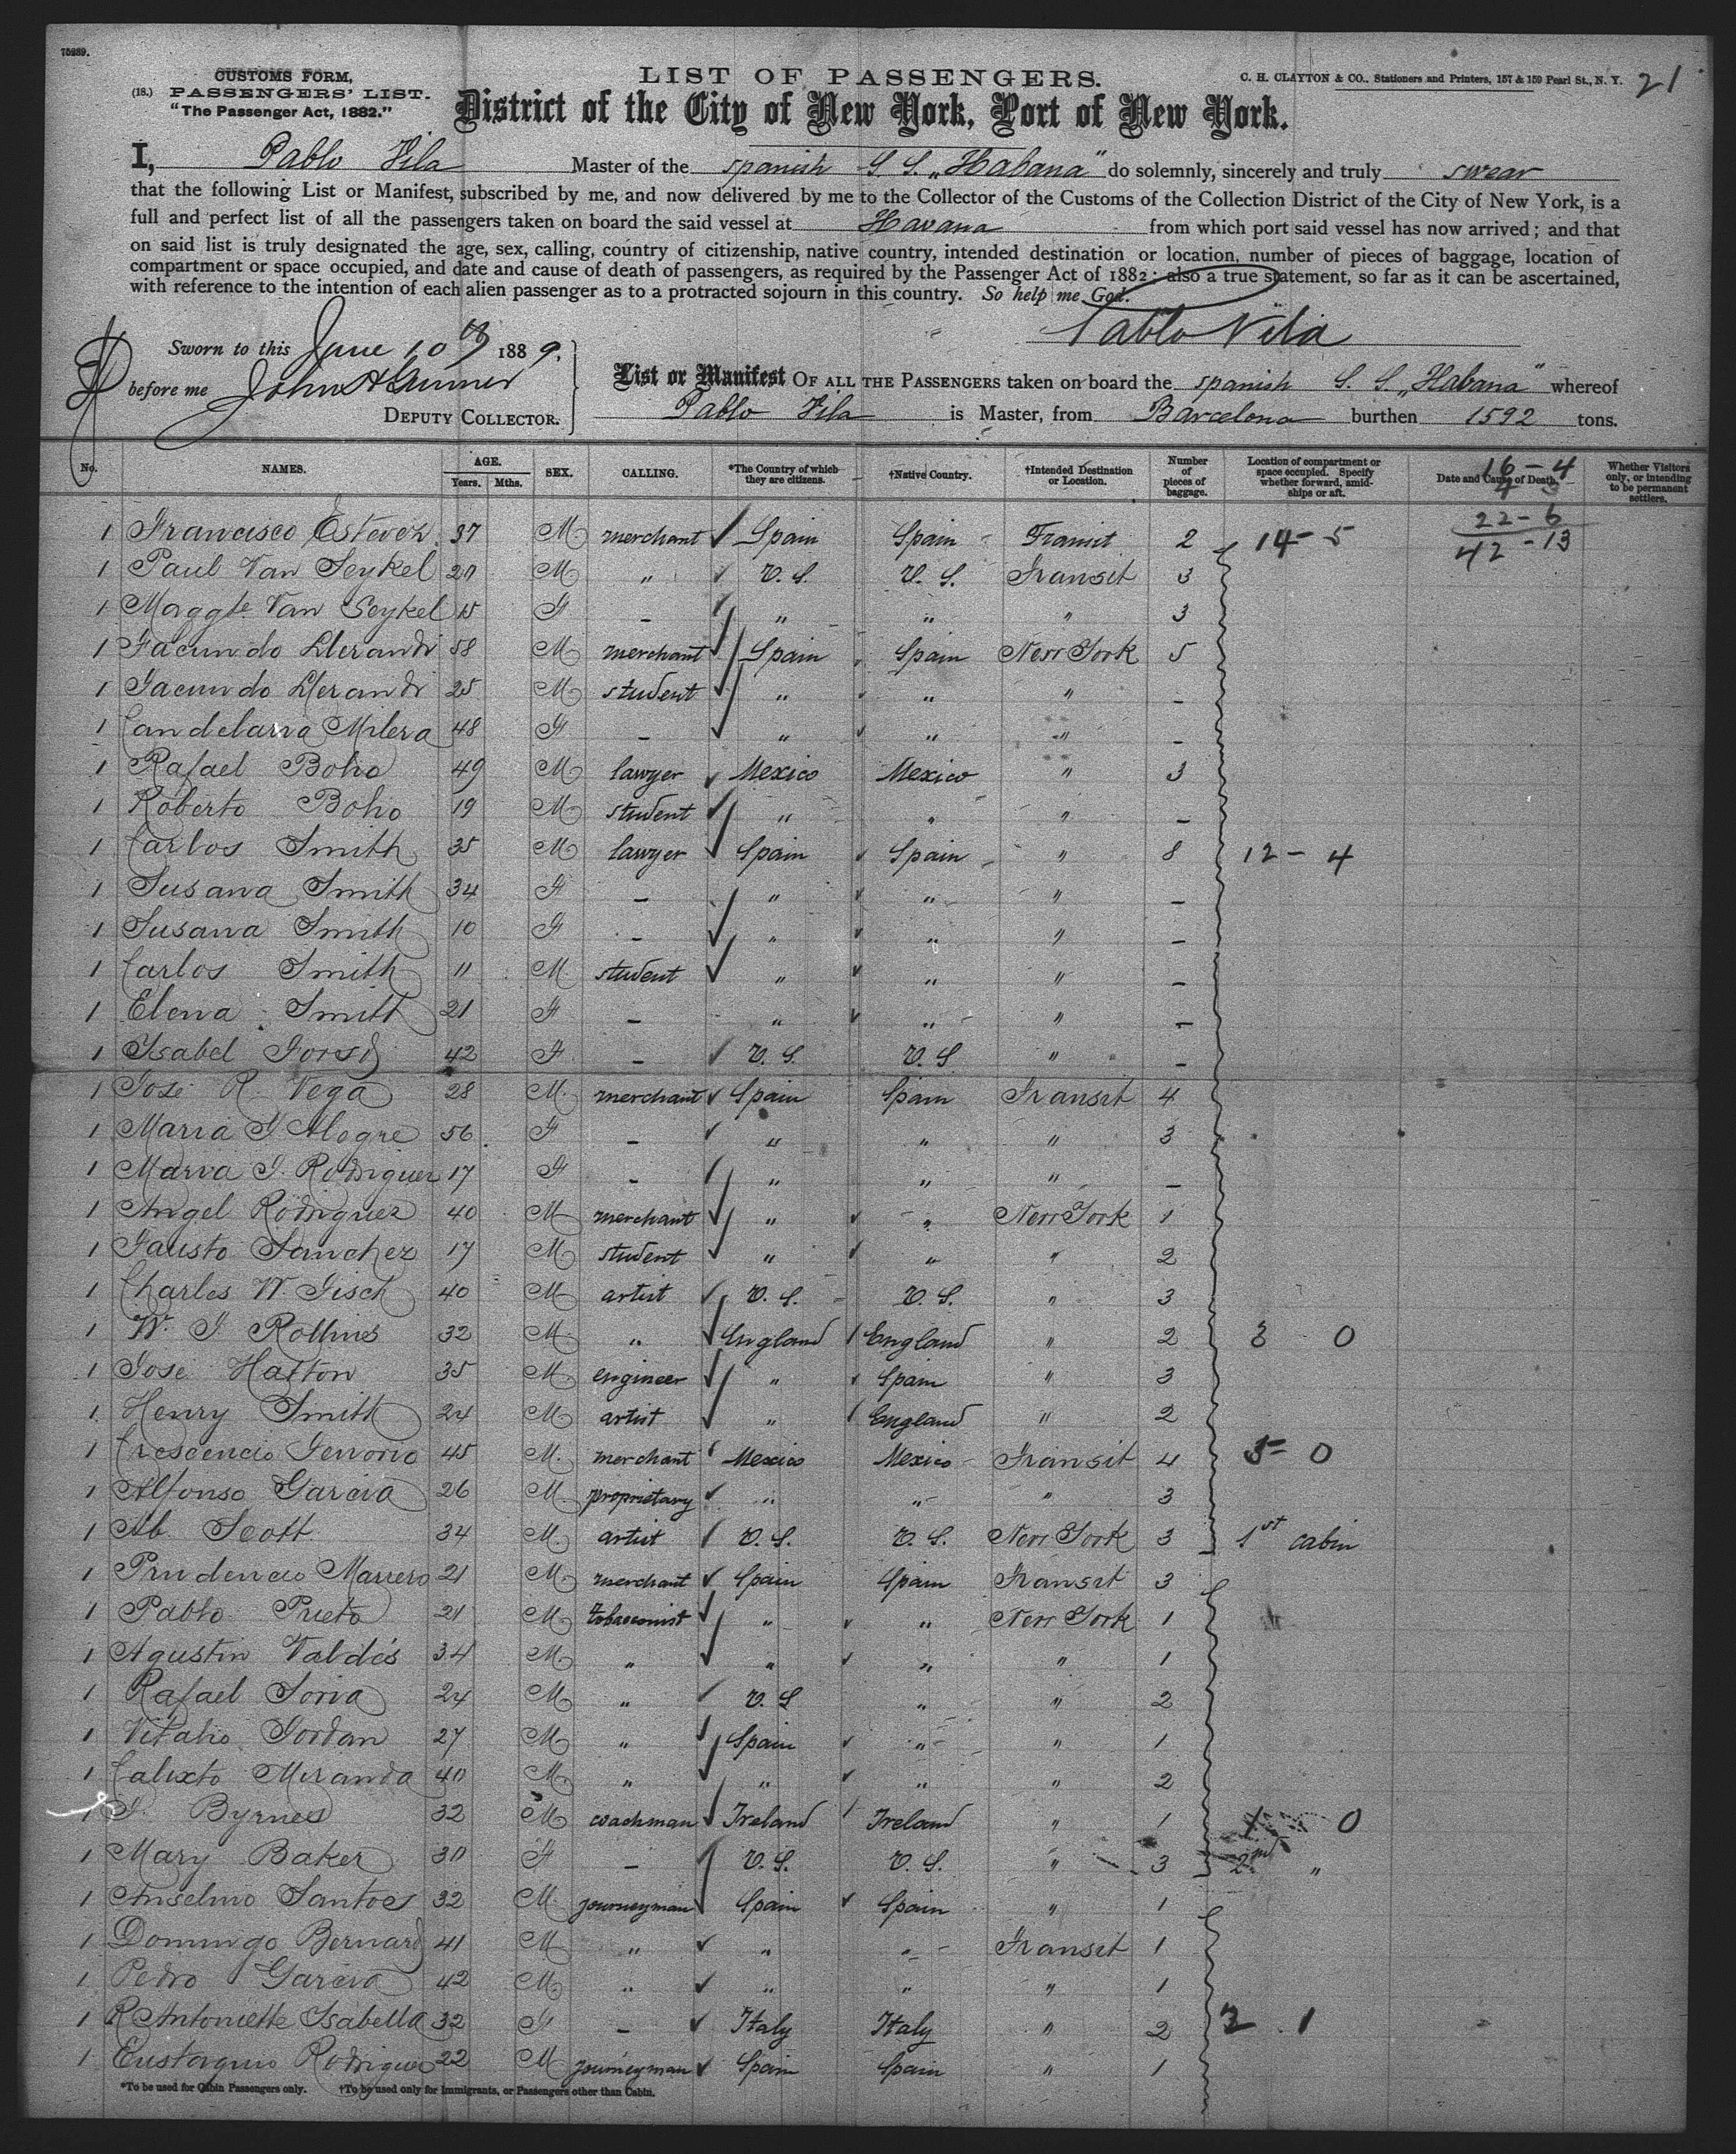 75289.
CUSTOMS FORM,
(18.) PASSENGERS' LIST.
"The Passenger Act, 1882."
LIST OF PASSENGERS.
C. H. CLAYTON & CO., Stationers and Printers, 157 & 159 Pearl St., N. Y.
21
District of the City of New York, Port of New York.
I, Pablo Vila Master of the spanish S S. „Habana" do solemnly, sincerely and truly swear
that the following List or Manifest, subscribed by me, and now delivered by me to the Collector of the Customs of the Collection District of the City of New York, is a
full and perfect list of all the passengers taken on board the said vessel at Havana from which port said vessel has now arrived; and that
on said list is truly designated the age, sex, calling, country of citizenship, native country, intended destination or location, number of pieces of baggage, location of
compartment or space occupied, and date and cause of death of passengers, as required by the Passenger Act of 1882; also a true statement, so far as it can be ascertained,
with reference to the intention of each alien passenger as to a protracted sojourn in this country. So help me God.
Pablo Vila
Sworn to this June 10th 1889,
before me John H
DEPUTY COLLECTOR.
List or Manifest OF ALL THE PASSENGERS taken on board the spanish S. S. „Habana" whereof
Pablo Vila is Master, from Barcelona burthen 1592 tons.
No. NAMES. AGE. Years. Mths. SEX. CALLING. *The Country of which they are citizens. †Native Country. †Intended Destination or Location. Number of pieces of baggage. Location of compartment or space occupied. Specify whether forward, amidships or aft. Date and Cause of Death. Whether Visitors only, or intending to be permanent settlers.
16 - 4
4 3
22 - 6
42 - 13
1 Francisco Estevez 37 M. merchant Spain Spain Transit 2 14 - 5
1 Paul Van Seykel 20 M " U. S. U. S. Transit 3
1 Van Seykel 15 F - " " " 3
1 Facundo Llerandi 58 M merchant Spain Spain New York 5
1 Facundo Llerandi 25 M student " " " -
1 Candelaria Milera 48 F - " " " -
1 Rafael Boho 49 M lawyer Mexico Mexico " 3
1 Roberto Boho 19 M student " " " -
1 Carlos Smith 35 M lawyer Spain Spain " 8 12 - 4
1 Susana Smith 34 F - " " " -
1 Susana Smith 10 F - " " " -
1 Carlos Smith 11 M. student " " " -
1 Elena Smith 21 F - " " " -
1 Isabel 42 F - U. S. U. S " -
1 Jose R. Vega 28 M. merchant Spain Spain Transit 4
1 Maria Alegre 56 F - " " " 3
1 Maria Rodriguez 17 F - " " " -
1 Angel Rodriguez 40 M merchant " " New York 1
1 Fausto Sanchez 17 M student " " " 2
1 Charles W. Fisch 40 M artist U. S. U. S. " 3
1 W. Rollines 32 M " England England " 2 3 0
1 Jose Hatton 35 M engineer " Spain " 3
1 Henry Smith 24 M artist " England " 2
1 Crescencio Tenorio 45 M. merchant Mexico Mexico Transit 4 5 - 0
1 Alfonso Garcia 26 M. proprietary " " " 3
1 Ab. Scott 34 M. artist U. S. U. S. New York 3 1st cabin
1 Prudencio Marrero 21 M. merchant Spain Spain Transit 3
1 Pablo Prieto 21 M. tobacconist " " New York 1
1 Agustin Valdés 34 M. " " " " 1
1 Rafael Soria 24 M " U. S " " 2
1 Vitalio Jordan 27 M " Spain " " 1
1 Calixto Miranda 40 M. " " " " 2
1 Byrnes 32 M coachman Ireland Ireland " 1 1 0
1 Mary Baker 30 F - U. S. U. S. " 3 2nd "
1 Anselmo Santos 32 M journeyman Spain Spain " 1
1 Domingo Bernard 41 M " " " Transit 1
1 Pedro Garcia 42 M. " " " " 1
1 R Antoniette Isabella 32 F - Italy Italy " 2 2 . 1
1 Eustaquio Rodriguez 22 M journeyman Spain Spain " 1
*To be used for Cabin Passengers only. †To be used only for Immigrants, or Passengers other than Cabin.